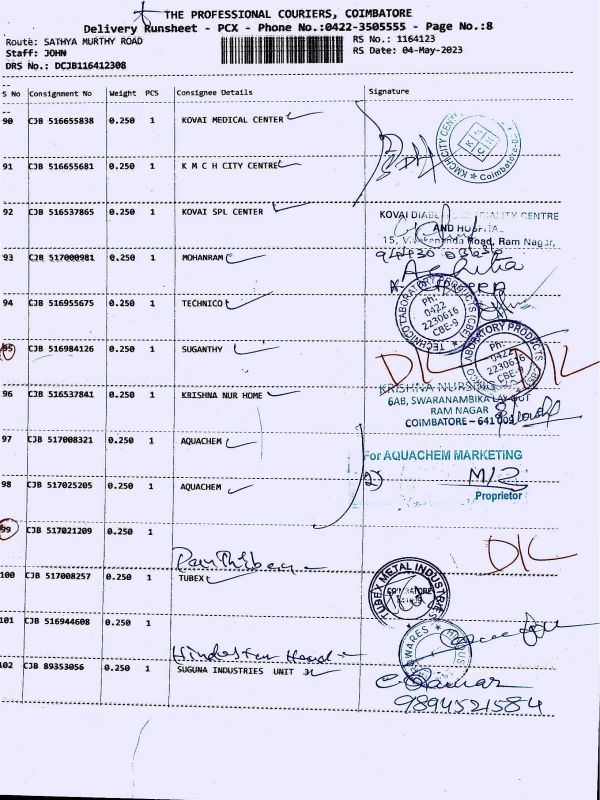 THE PROFESSIONAL COURIERS, COIMBATORE
Delivery Runsheet - PCX - Phone No.:0422-3505555 - Page No.:8
Route: SATHYA MURTHY ROAD RS No.: 1164123
Staff: JOHN RS Date: 04-May-2023
DRS No.: DCJB116412308
S No Consignment No Weight PCS Consignee Details Signature
90 CJB 516655838 0.250 1 KOVAI MEDICAL CENTER
KMCH CITY CENT
Coimbatore
91 CJB 516655681 0.250 1 K M C H CITY CENTRE
92 CJB 516537865 0.250 1 KOVAI SPL CENTER
KOVAI DIABE CENTRE
AND HOSPITAL
15, Vivekananda Road, Ram Nagar,
93 CJB 517000981 0.250 1 MOHANRAM
94 CJB 516955675 0.250 1 TECHNICO
TECHNICO LABORATORY PRODUCTS (CBE)
Ph:
0422
2230616
CBE-9
95 CJB 516984126 0.250 1 SUGANTHY
D/L D/L
LABORATORY PRODUCTS
Ph:
0422
2230616
CBE-9
96 CJB 516537841 0.250 1 KRISHNA NUR HOME
KRISHNA NURSING
6AB, SWARANAMBIKA LAYOUT
RAM NAGAR
COIMBATORE - 641 009
97 CJB 517008321 0.250 1 AQUACHEM
For AQUACHEM MARKETING
98 CJB 517025205 0.250 1 AQUACHEM
2)
Proprietor
99 CJB 517021209 0.250 1
D/L
100 CJB 517008257 0.250 1 TUBEX
TUBEX METAL INDUSTRIES
COIMBATORE
101 CJB 516944608 0.250 1
102 CJB 89353056 0.250 1 SUGUNA INDUSTRIES UNIT
9894521584